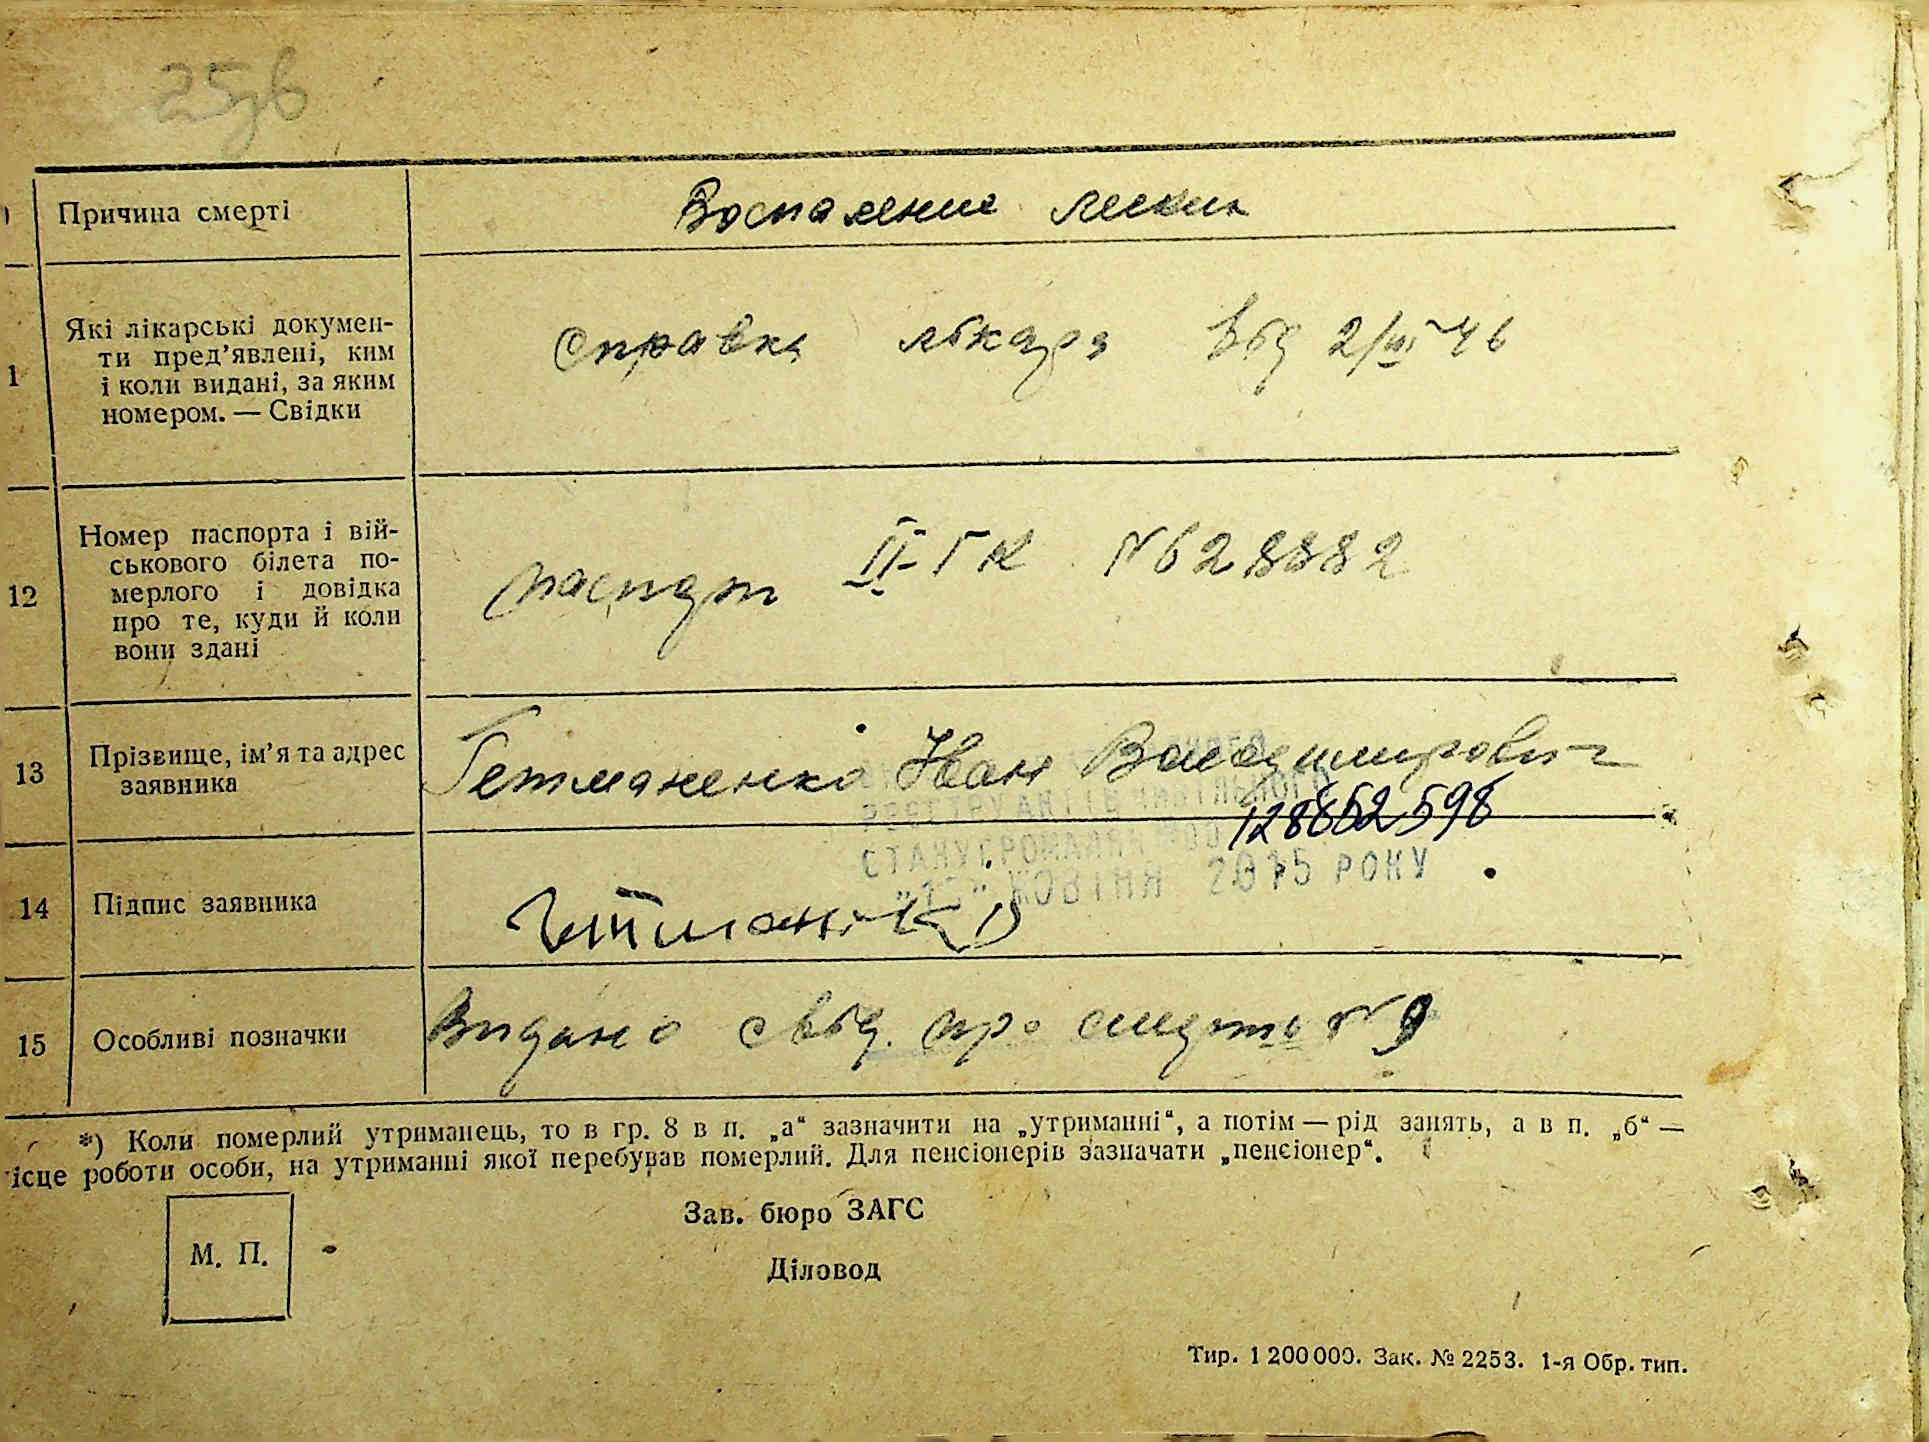 25зв
Причина смерті
Воспаление легких
1
Які лікарські докумен-
ти пред’явлені, ким
і коли видані, за яким
номером. — Свідки
Справка лікаря від 2/III-46
12
Номер паспорта і вій-
ськового білета по-
мерлого і довідка
про те, куди й коли
вони здані
паспорт II-ГК №628882
13
Прізвище, ім’я та адрес
заявника
Гетманенко Іван Володимирович
128652598
РЕЄСТРУ АКТІВ ЦИВІЛЬНОГО
СТАНУ ГРОМАДЯН
ЖОВТНЯ 2015 РОКУ
14
Підпис заявника
15
Особливі позначки
Видано свід. про смерть № 9
*) Коли померлий утриманець, то в гр. 8 в п. „а“ зазначити на „утриманні“, а потім — рід занять, а в п. „б“ —
ісце роботи особи, на утриманні якої перебував померлий. Для пенсіонерів зазначати „пенсіонер“.
М. П.
Зав. бюро ЗАГС
Діловод
Тир. 1 200 000. Зак. № 2253. 1-я Обр. тип.